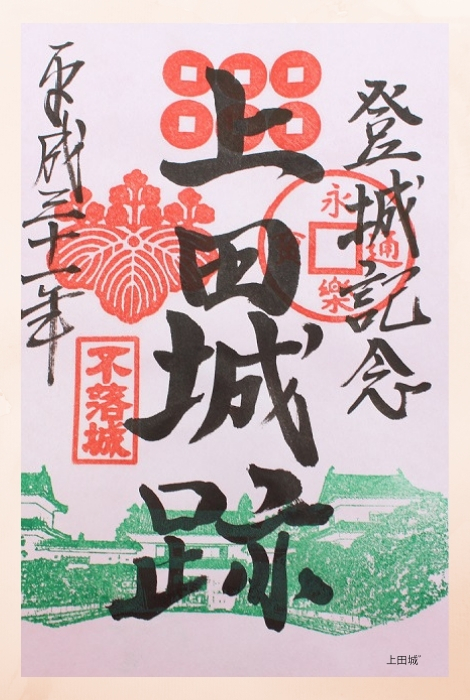 登城記念
永樂通
上田城跡
平成三十一年
不落城
上田城゛